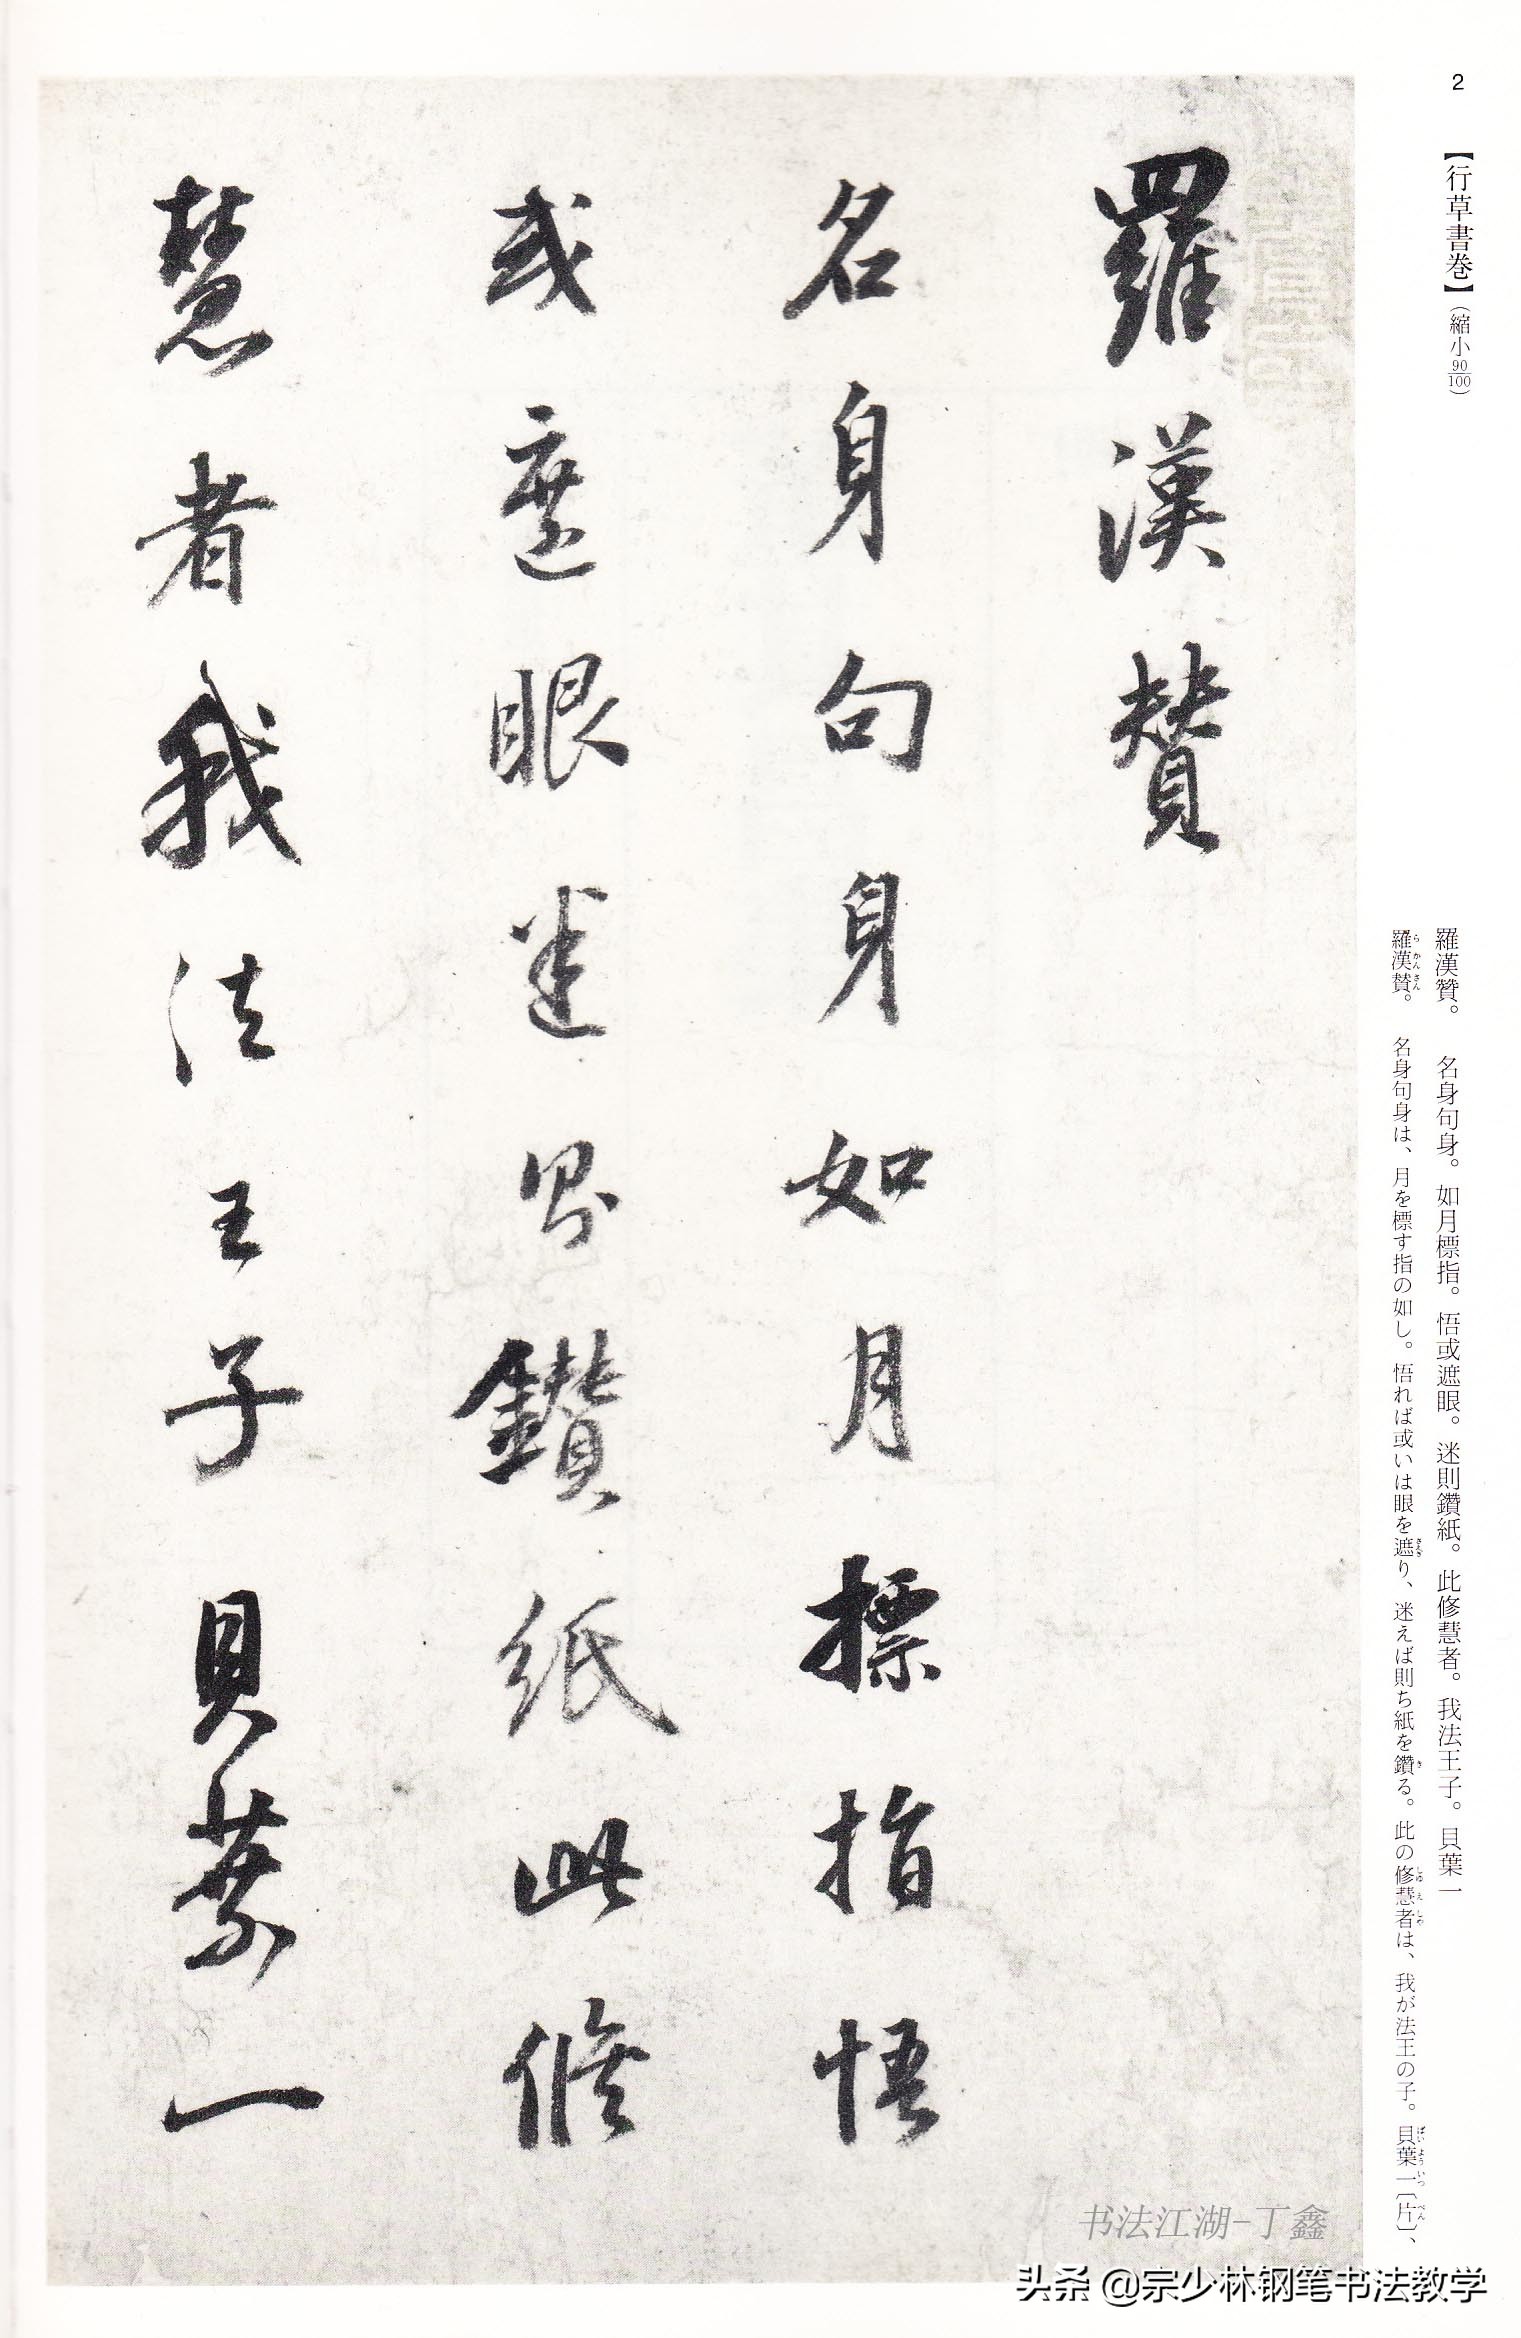 2
【行草書巻】（縮小90/100）
羅漢贊。　名身句身。如月標指。悟或遮眼。迷則鑽紙。此修慧者。我法王子。貝葉一
羅漢賛。　名身句身は、月を標す指の如し。悟れば或いは眼を遮り、迷えば則ち紙を鑽る。此の修慧者は、我が法王の子。貝葉一〔片〕、
羅漢賛
名身句身如月標指悟
或遮眼迷則鑚紙此修
慧者我法王子貝葉一
书法江湖-丁鑫
头条 @宗少林钢笔书法教学